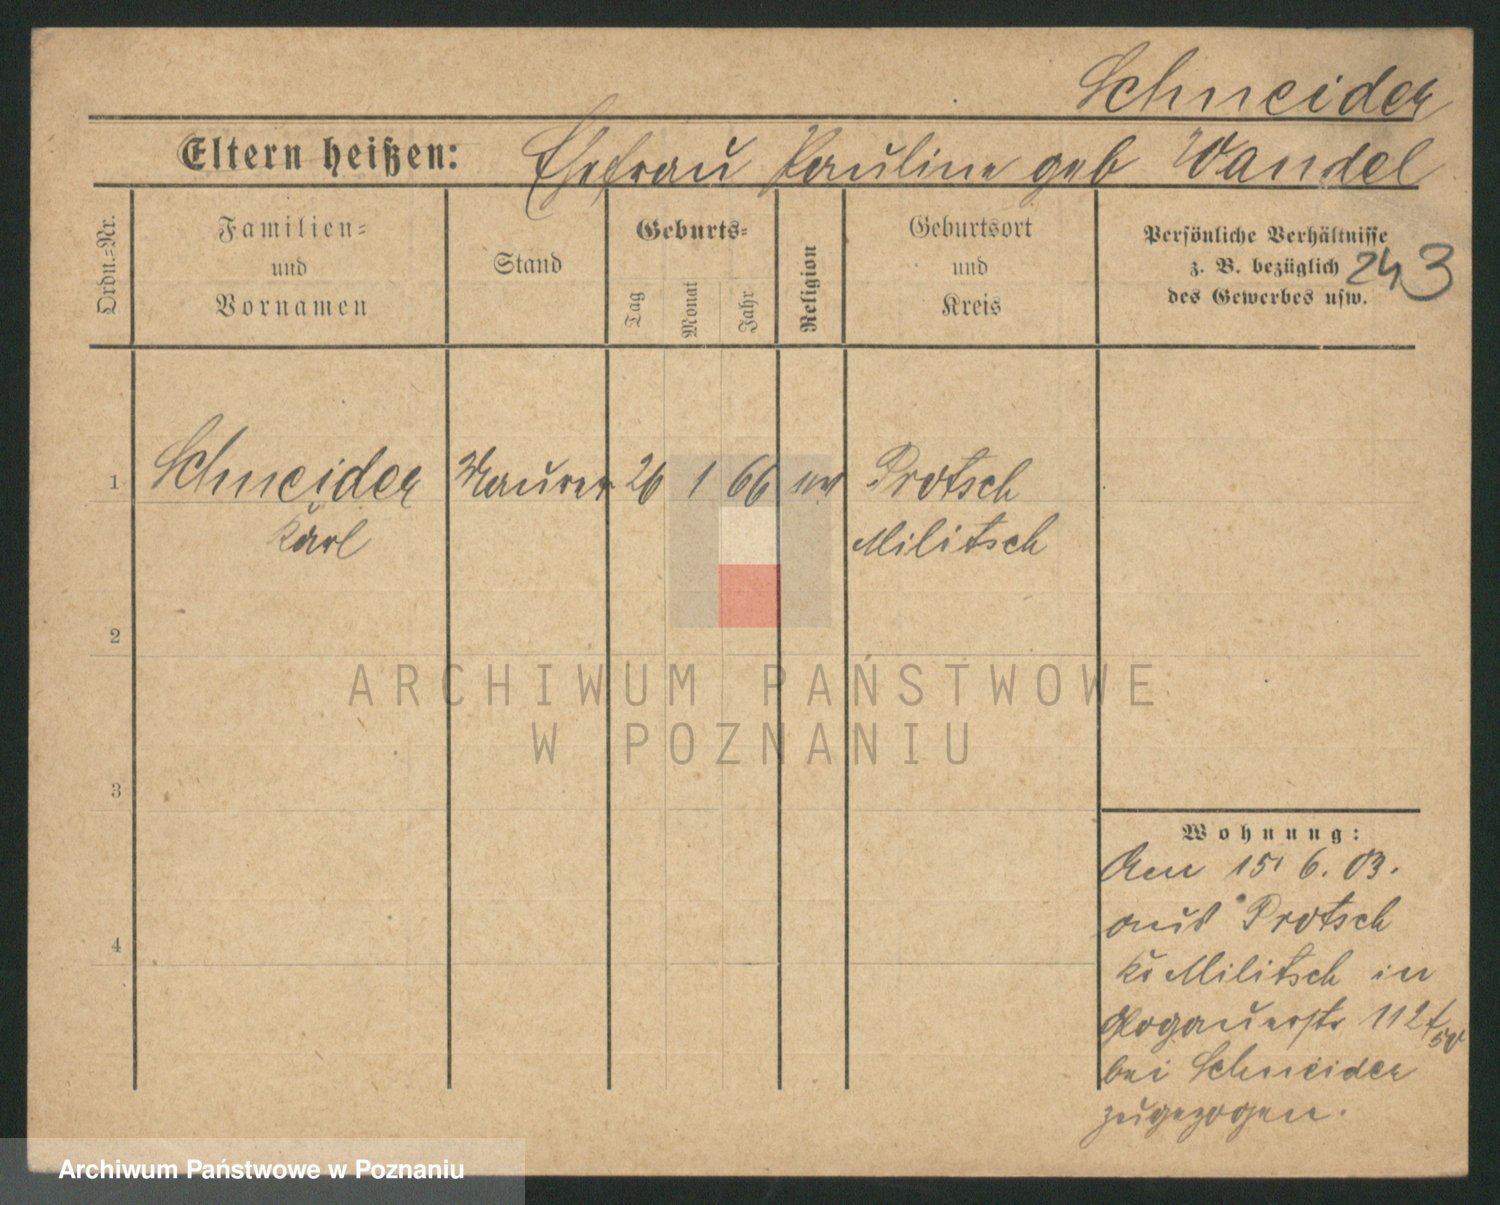 Schneider
Eltern heißen: Ehefrau Pauline geb Wandel
Ordn.-Nr.
Familien-
und
Vornamen
Stand
Geburts-
Tag
Monat
Jahr
Religion
Geburtsort
und
Kreis
Persönliche Verhältnisse
z. B. bezüglich
des Gewerbes usw.
243
1 Schneider Maurer 26 1 66 Protsch
Karl Militsch
2
ARCHIWUM PAŃSTWOWE
W POZNANIU
3
Wohnung:
Am 15. 6. 03.
aus Protsch
Kr Militsch in
Glogauerstr 112
bei Schneider
zugezogen.
4
Archiwum Państwowe w Poznaniu